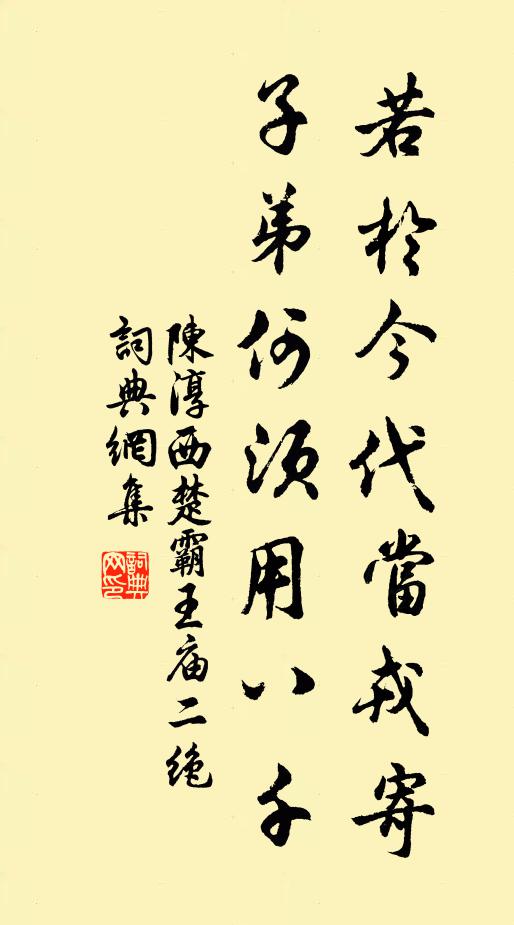 若於今代當戎寄
子弟何須用八千
陳淳西楚霸王庙二绝
詞典網集
詞典网印